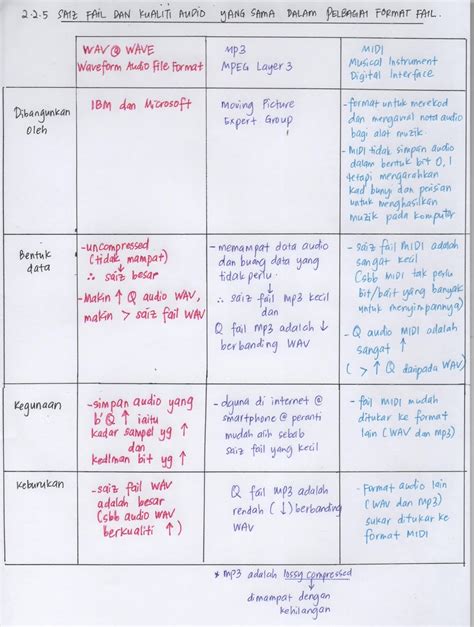 2.2.5 SAIZ FAIL DAN KUALITI AUDIO YANG SAMA DALAM PELBAGAI FORMAT FAIL.
WAV @ WAVE
Waveform Audio File Format
MP3
MPEG Layer 3
MIDI
Musical Instrument
Digital Interface
Dibangunkan
oleh
IBM dan Microsoft
Moving Picture
Expert Group
-format untuk merekod
dan mengawal nota audio
bagi alat muzik.
-MIDI tidak simpan audio
dalam bentuk bit 0, 1
tetapi mengarahkan
kad bunyi dan perisian
untuk menghasilkan
muzik pada komputer
Bentuk
data
-uncompressed
(tidak mampat)
↓
∴ saiz besar
-Makin ↑ Q audio WAV,
makin > saiz fail WAV
-memampat data audio
dan buang data yang
tidak perlu.
↓
∴ saiz fail MP3 kecil
dan
Q fail MP3 adalah ↓
berbanding WAV
- saiz fail MIDI adalah
sangat kecil
(sbb MIDI tak perlu
bit/bait yang banyak
untuk menyimpannya)
-Q audio MIDI adalah
sangat ↑
( > ↑ Q daripada WAV)
Kegunaan
-simpan audio yang
b'Q ↑ iaitu
kadar sampel yg ↑
dan
kedlman bit yg ↑
-dguna di internet @
smartphone @ peranti
mudah alih sebab
saiz fail yang kecil
-fail MIDI mudah
ditukar ke format
lain (WAV dan mp3)
Keburukan
-saiz fail WAV
adalah besar
(sbb audio WAV
berkualiti ↑)
Q fail MP3 adalah
rendah (↓) berbanding
WAV
-Format audio lain
(WAV dan MP3)
sukar ditukar ke
format MIDI
* MP3 adalah lossy compressed
↓
dimampat dengan
kehilangan